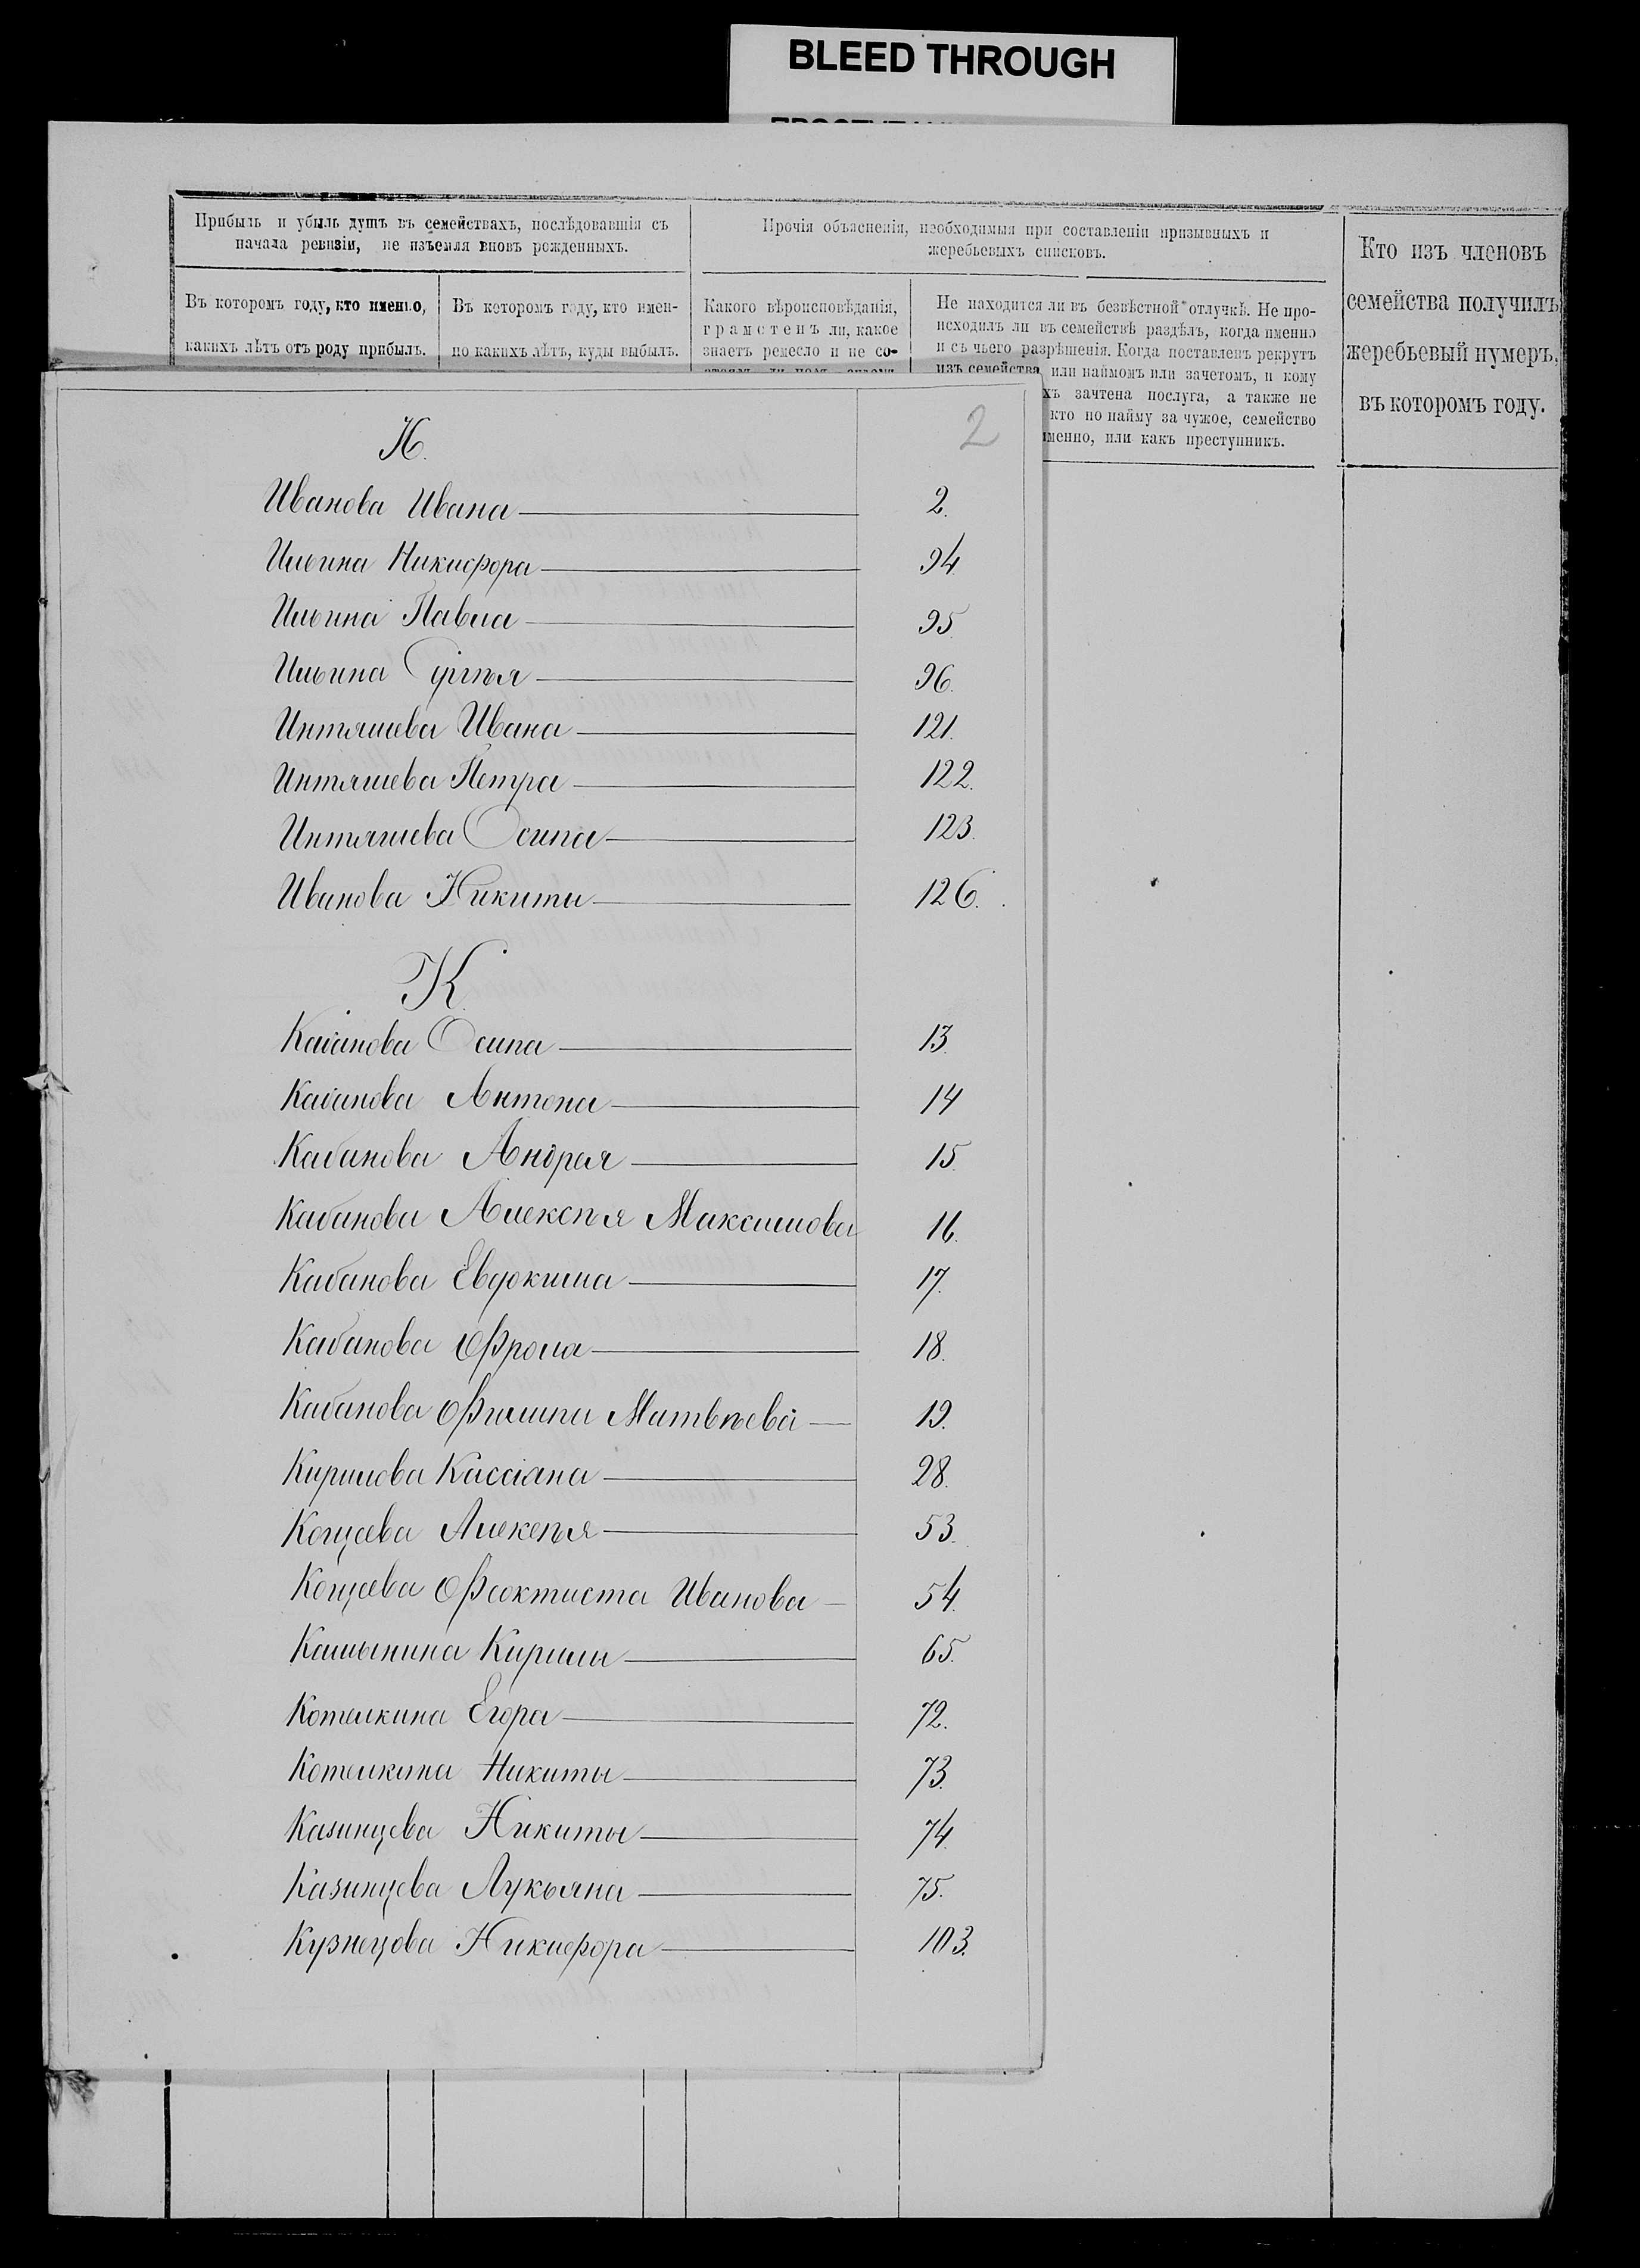 BLEED THROUGH
Прибыль и убыль душъ въ семействахъ, послѣдовавшія съ
начала ревизіи, не изъемля вновь рожденныхъ.
Прочія объясненія, необходимыя при составленіи призывныхъ и
жеребьевыхъ списковъ.
Кто изъ членовъ
семейства получилъ
жеребьевый нумеръ,
въ которомъ году.
Въ которомъ году, кто именно,
какихъ лѣтъ отъ роду прибылъ.
Въ которомъ году, кто имен-
но какихъ лѣтъ, куды выбылъ.
Какого вѣроисповѣданія,
грамотенъ ли, какое
знаетъ ремесло и не со-
Не находится ли въ безвѣстной отлучкѣ. Не про-
исходилъ ли въ семействѣ раздѣлъ, когда именно
и съ чьего разрѣшенія. Когда поставленъ рекрутъ
изъ семейства или наймомъ или зачетомъ, и кому
хъ зачтена послуга, а также не
кто по найму за чужое, семейство
менно, или какъ преступникъ.
2
И.
Иванова Ивана 2.
Ильина Никифора 94
Ильина Павла 95
Ильина Сергѣя 96.
Интяшева Ивана 121.
Интяшева Петра 122.
Интяшева Осипа 123.
Иванова Никиты 126.
К
Кабанова Осипа 13.
Кабанова Антона 14
Кабанова Андрея 15.
Кабанова Алексѣя Максимова 16.
Кабанова Евдокима 17.
Кабанова Фрола 18.
Кабанова Филипа Матвѣева 19.
Кирилова Кассіана 28.
Кощеева Алексѣя 53.
Кощеева Феоктиста Иванова 54.
Камынина Кирилы 65.
Котелкина Егора 72.
Котелкина Никиты 73.
Казинцева Никиты 74.
Казинцева Лукьяна 75.
Кузнецова Никифора 103.